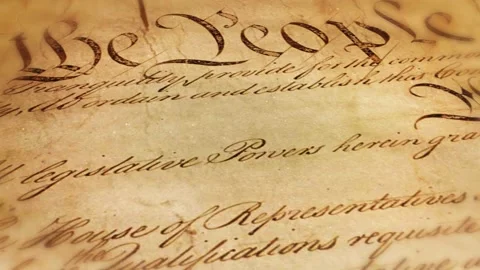 We the People
Tranquility, provide for the common
ty, do ordain and establish this Co
ll legislative Powers herein gra
House of Representatives
Qualifications requisite